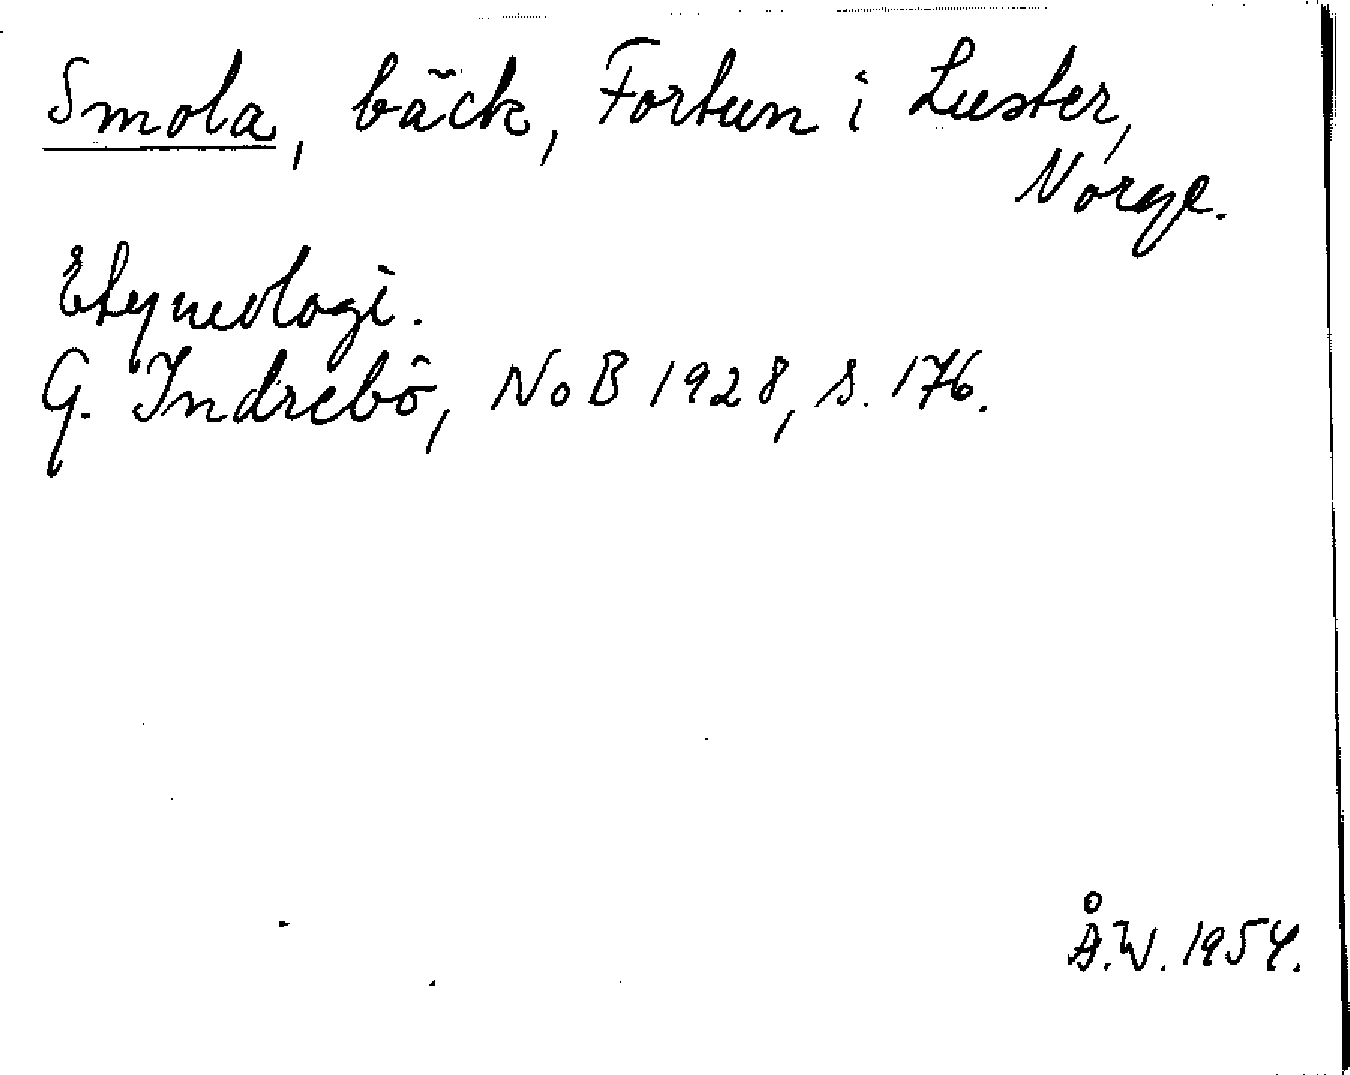 Smola, bäck, Fortun i Luster,
Norge.
Etymologi.
G. Indrebö, NoB 1928, s. 176.
Å.W. 1954.